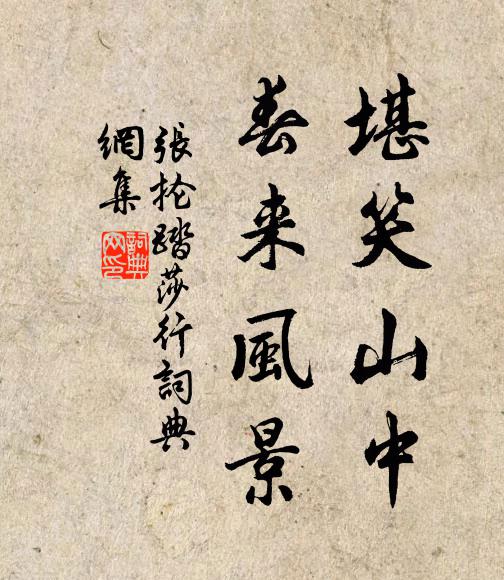 堪笑山中
春來風景
張掄踏莎行詞典
網集
詞典
网印